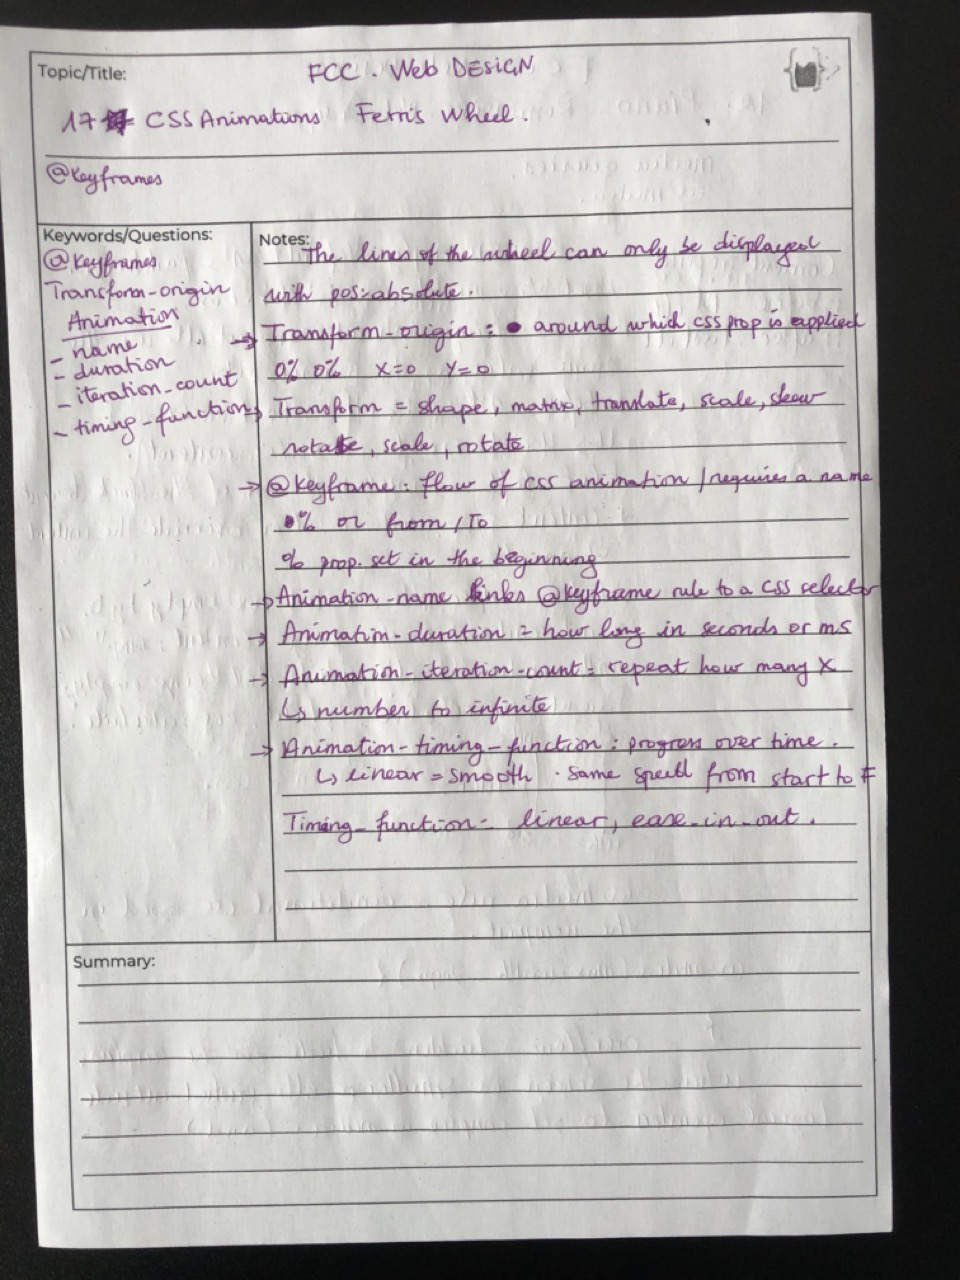 Topic/Title: FCC . Web DESIGN
17 CSS Animations Ferris Wheel .
@Keyframes
Keywords/Questions:
@Keyframes
Transform-origin
Animation
- name
- duration
- iteration-count
- timing-function
Notes:
The lines of the wheel can only be displayed
with pos:absolute.
→ Transform-origin : • around which css prop is applied
0% 0% X=0 Y=0
→ Transform = shape, matrix, translate, scale, skew
rotate, scale, rotate
→ @Keyframe : flow of css animation / requires a name
0% or from / To
% prop. set in the beginning
→ Animation-name links @keyframe rule to a CSS selector
→ Animation-duration = how long in seconds or ms
→ Animation-iteration-count = repeat how many X
↳ number to infinite
→ Animation-timing-function : progress over time .
↳ linear = smooth . same speed from start to F
Timing-function = linear, ease-in-out .
Summary: